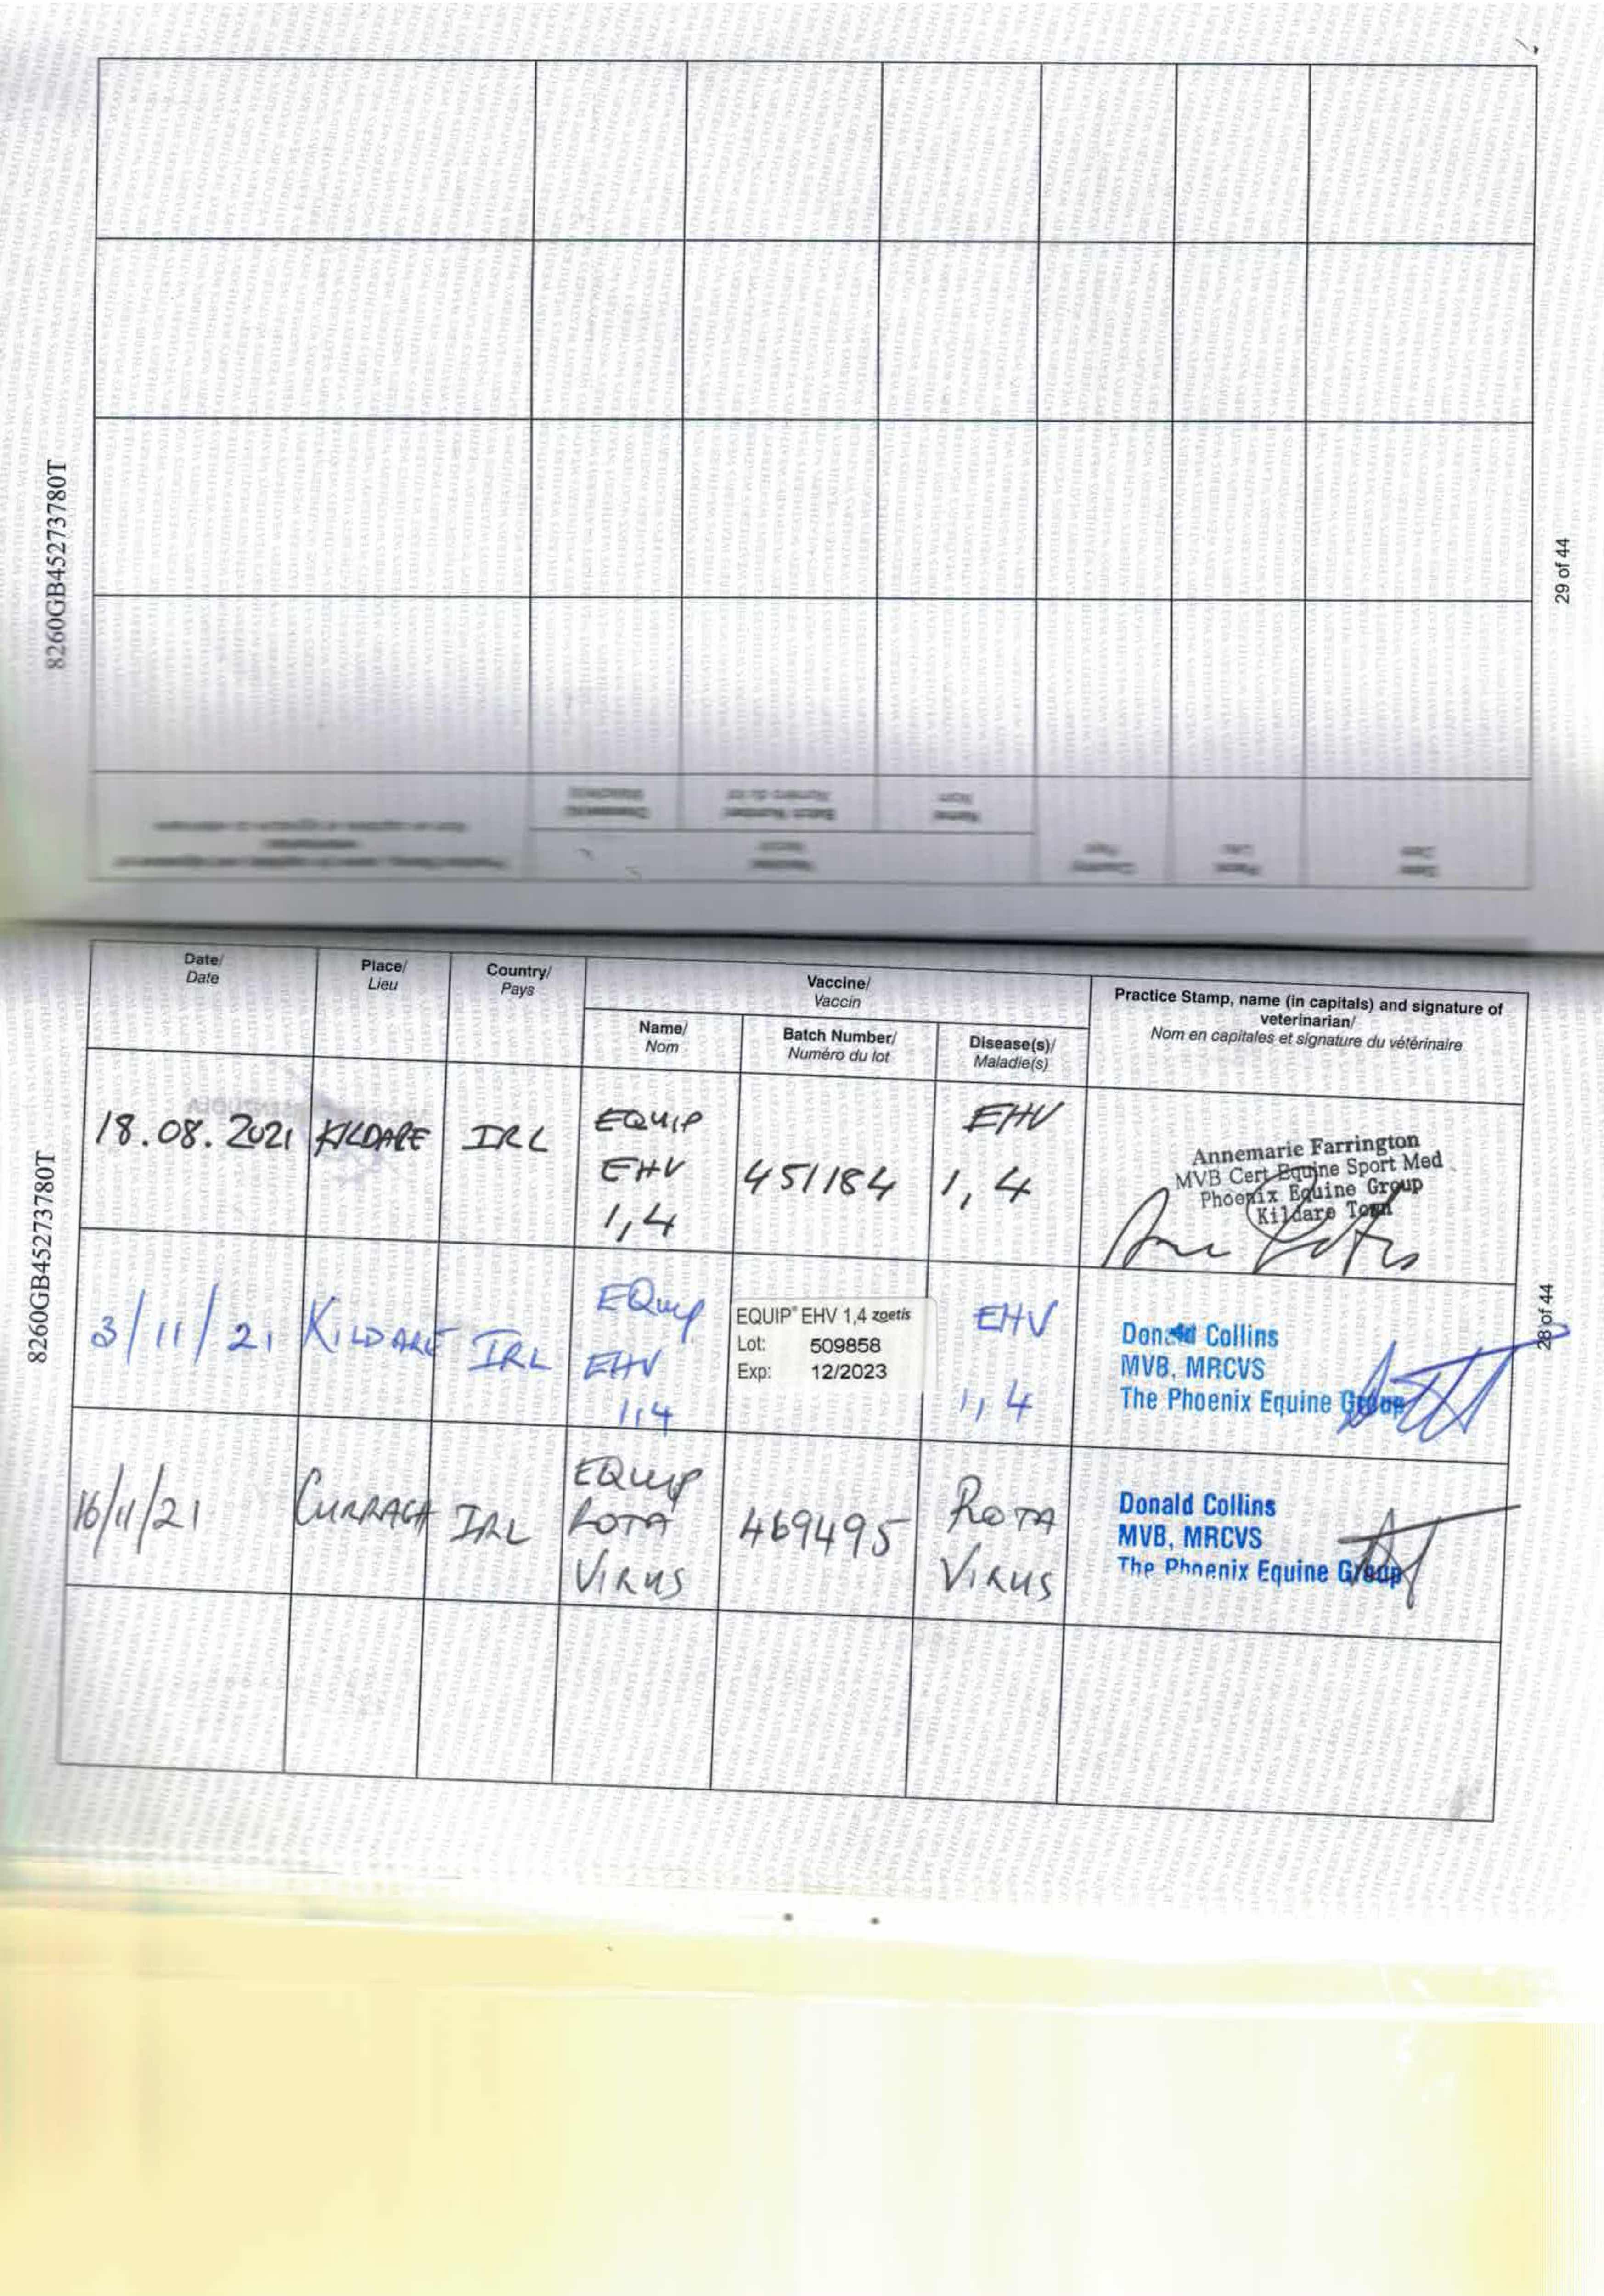 8260GB45273780T
29 of 44
Date/
Date
Place/
Lieu
Country/
Pays
Vaccine/
Vaccin
Name/
Nom
Batch Number/
Numéro du lot
Disease(s)/
Maladie(s)
Practice Stamp, name (in capitals) and signature of
veterinarian/
Nom en capitales et signature du vétérinaire
18.08.2021
KILDARE
IRL
EQUIP
EHV
1,4
451184
EHV
1,4
Annemarie Farrington
MVB Cert Equine Sport Med
Phoenix Equine Group
Kildare Town
3/11/21
KILDARE
IRL
EQuip
EHV
1,4
EQUIP® EHV 1,4 zoetis
Lot: 509858
Exp: 12/2023
EHV
1,4
Donald Collins
MVB, MRCVS
The Phoenix Equine Group
16/11/21
CURRAGH
IRL
EQuip
ROTA
VIRUS
469495
ROTA
VIRUS
Donald Collins
MVB, MRCVS
The Phoenix Equine Group
8260GB45273780T
28 of 44